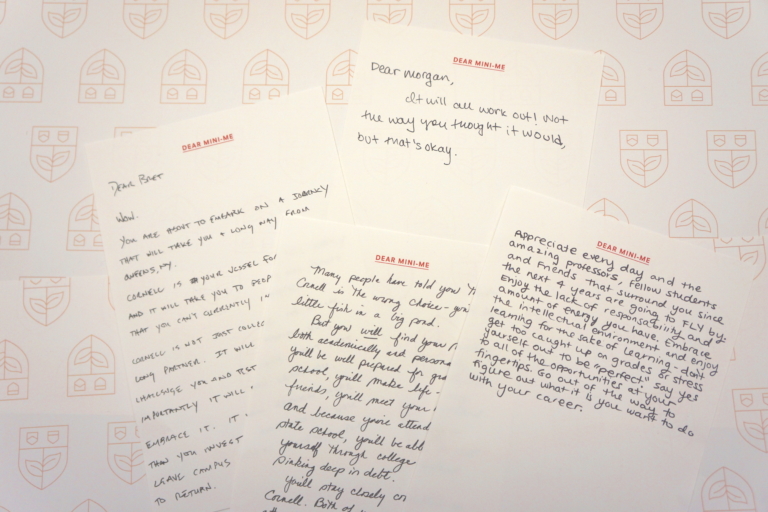 DEAR MINI-ME
Dear Morgan,
It will all work out! Not
the way you thought it would,
but that's okay.
DEAR MINI-ME
DEAR BRET
WOW.
YOU ARE ABOUT TO EMBARK ON A JOURNEY
THAT WILL TAKE YOU A LONG WAY FROM
QUEENS, NY.
CORNELL IS YOUR VESSEL FOR
AND IT WILL TAKE YOU TO
THAT YOU CAN'T CURRENTLY
CORNELL IS NOT JUST
LONG PARTNER. IT WILL
CHALLENGE YOU AND TEST
IMPORTANTLY IT WILL
EMBRACE IT. IT
THAN YOU INVEST
LEAVE CAMPUS
TO RETURN.
DEAR MINI-ME
Many people have told you
Cornell is the wrong choice-
little fish in a big pond.
But you will find your
both academically and
you'll be well prepared for
school, you'll make life-
friends, you'll meet your
and because you're
state school, you'll be
yourself through college
sinking deep in debt.
You'll stay closely
Cornell. Both of
DEAR MINI-ME
Appreciate every day and the
amazing professors, fellow students
and friends that surround you since
the next 4 years are going to FLY by.
Enjoy the lack of responsability and
amount of energy you have. Embrace
the intellectual environment and enjoy
learning for the sake of learning - don't
get too caught up on grades or stress
yourself out to be "perfect". Say yes
to all of the opportunities at your
fingertips. Go out of the way to
figure out what it is you want to do
with your career.